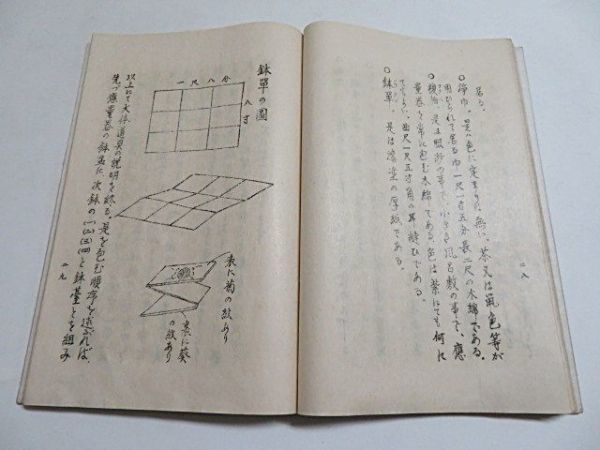 居る。
○浄巾。是は色に定まりは無い、茶又は鼠色等が
用ひられて居る巾一尺一寸五分長二尺の木綿である。
○袱紗。是は服紗の事で、小さき風呂敷の事で、應
量器を常に包む木綿である。色は茶にても何れ
でもよい。曲尺一尺五寸角の耳縫ひである。
○鉢單。是は漆塗の厚紙である。
二八
鉢單の圖
一尺八分
八寸
表に菊の紋あり
裏に葵
の紋あり
以上にて大体道具の説明を終る。是を包む順序を述ぶれば、
先づ應量器の鉢盂に次鉢の(一)(二)(三)(四)と鉢臺とを組み
二九